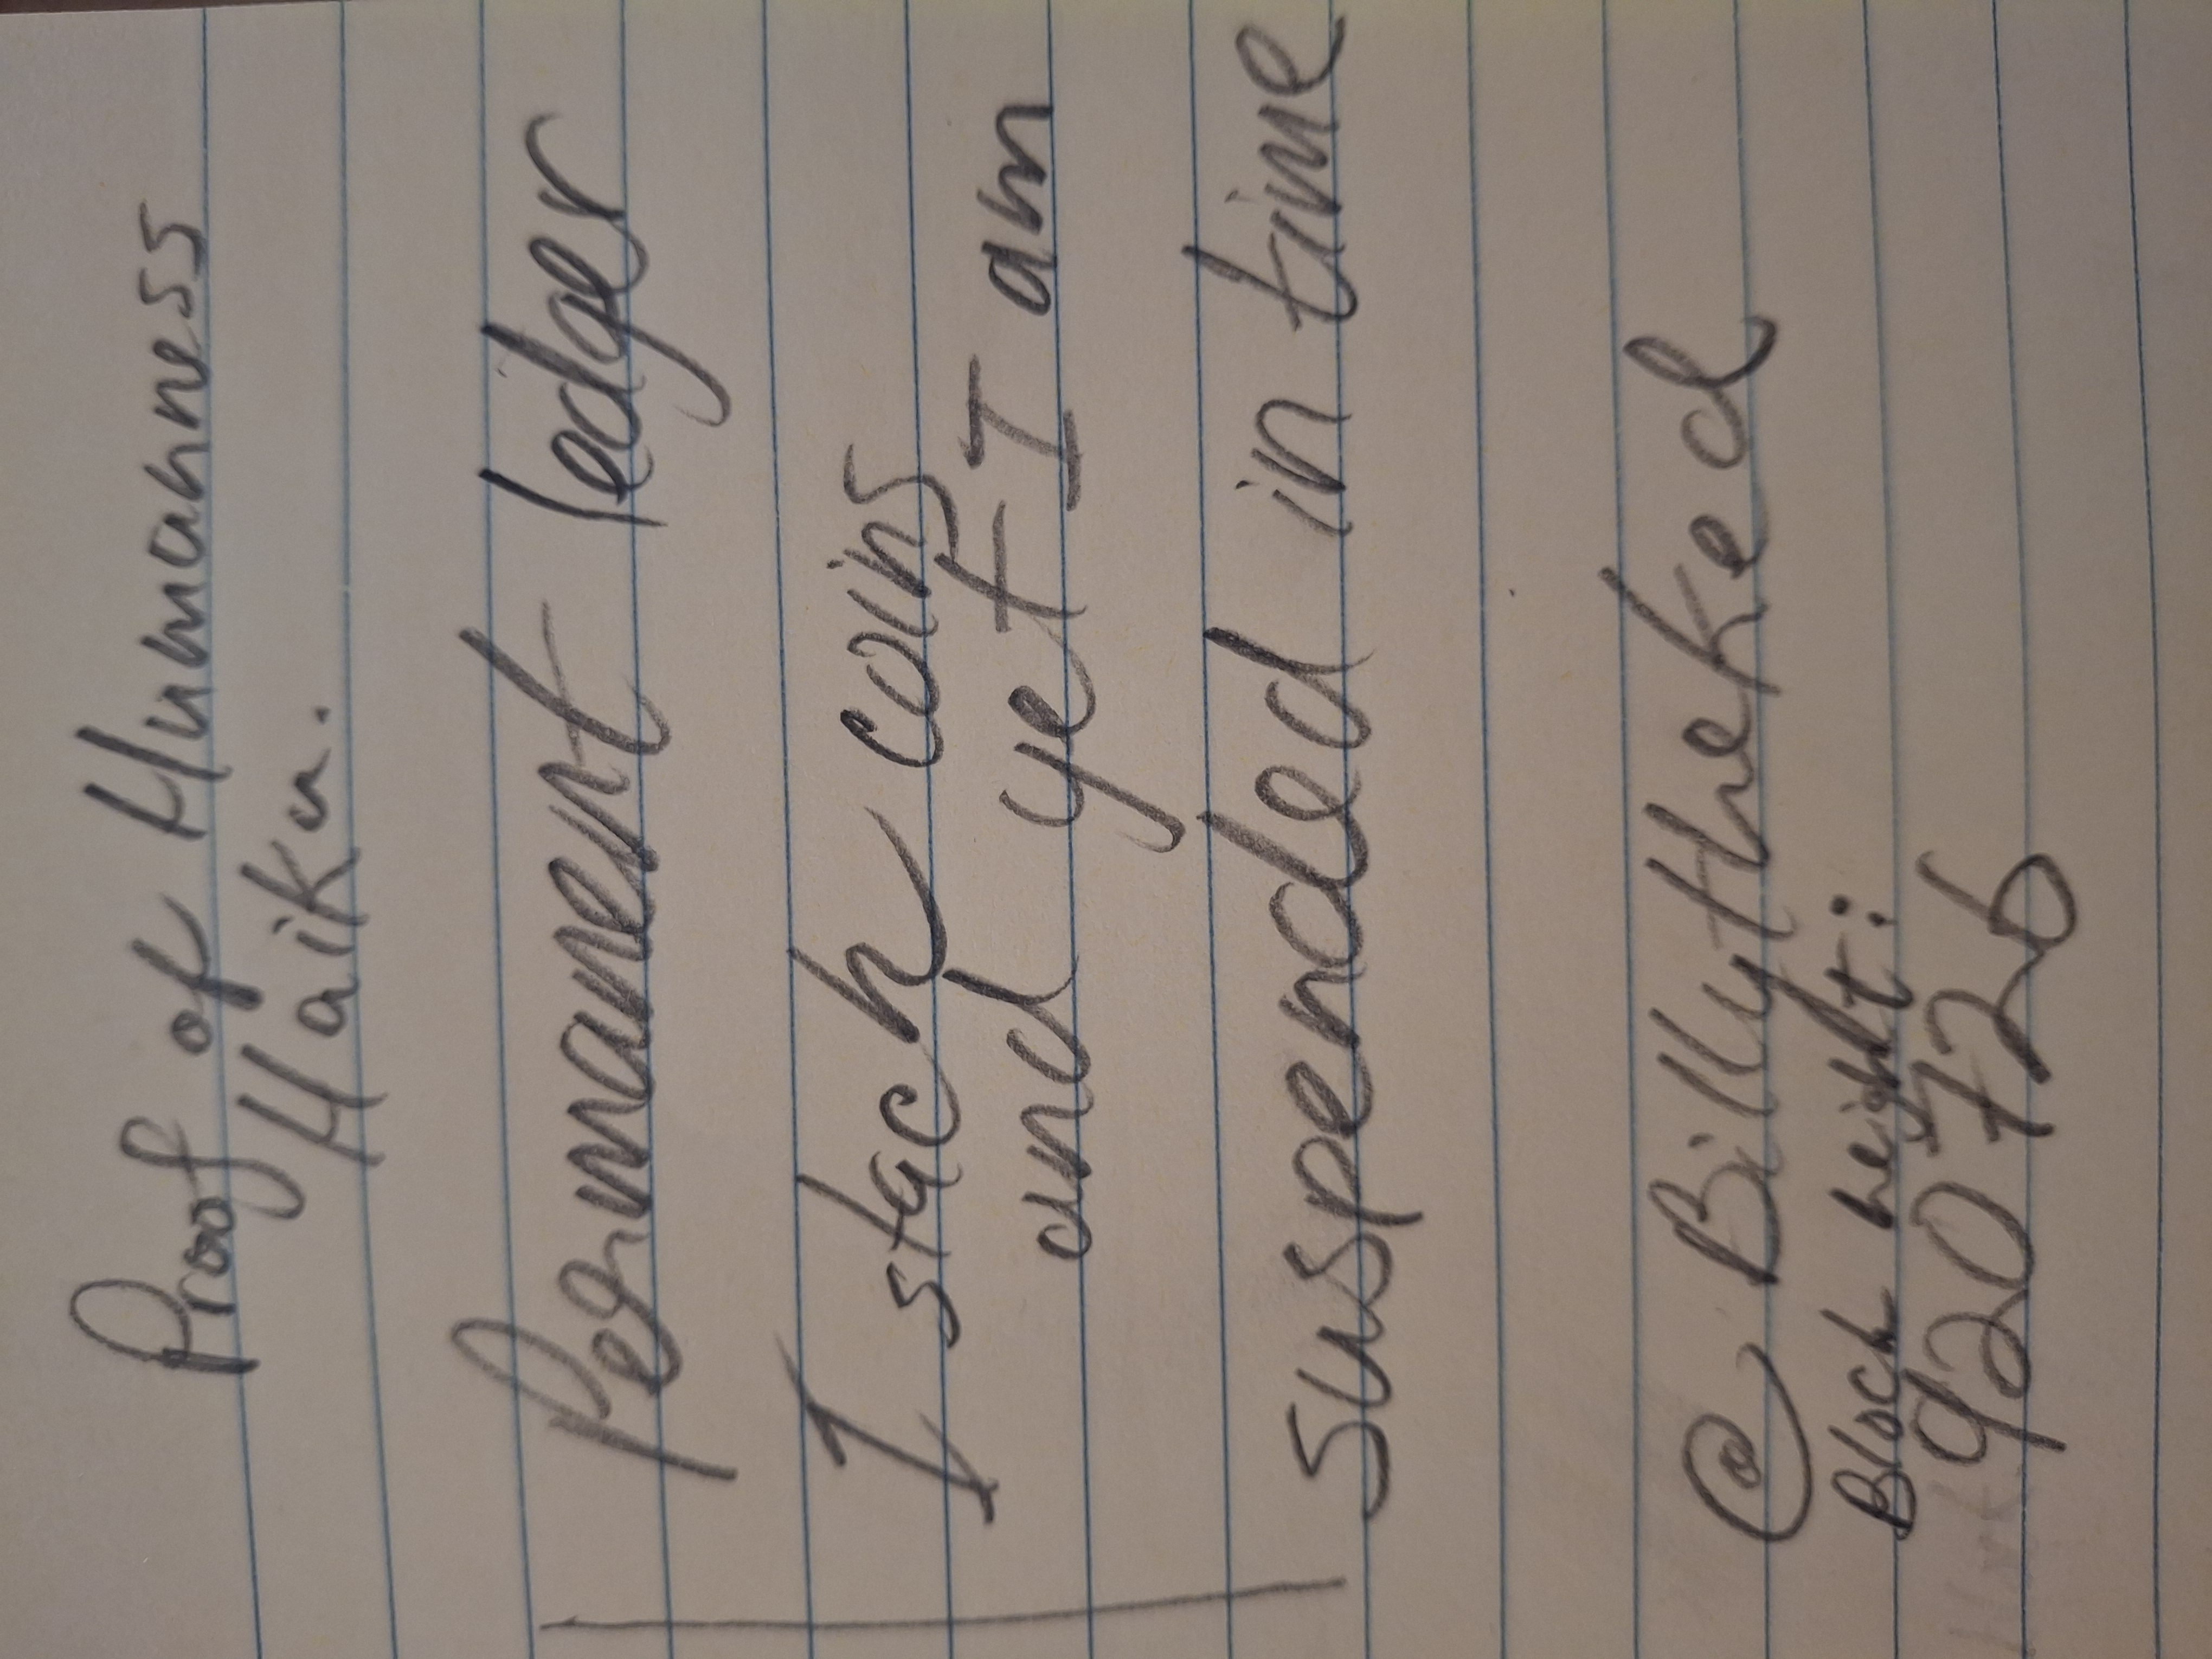 Proof of Humanness
Haiku.
Permanent ledger
I stack coins
and yet I am
suspended in time
@Billytheked
Block height:
920726